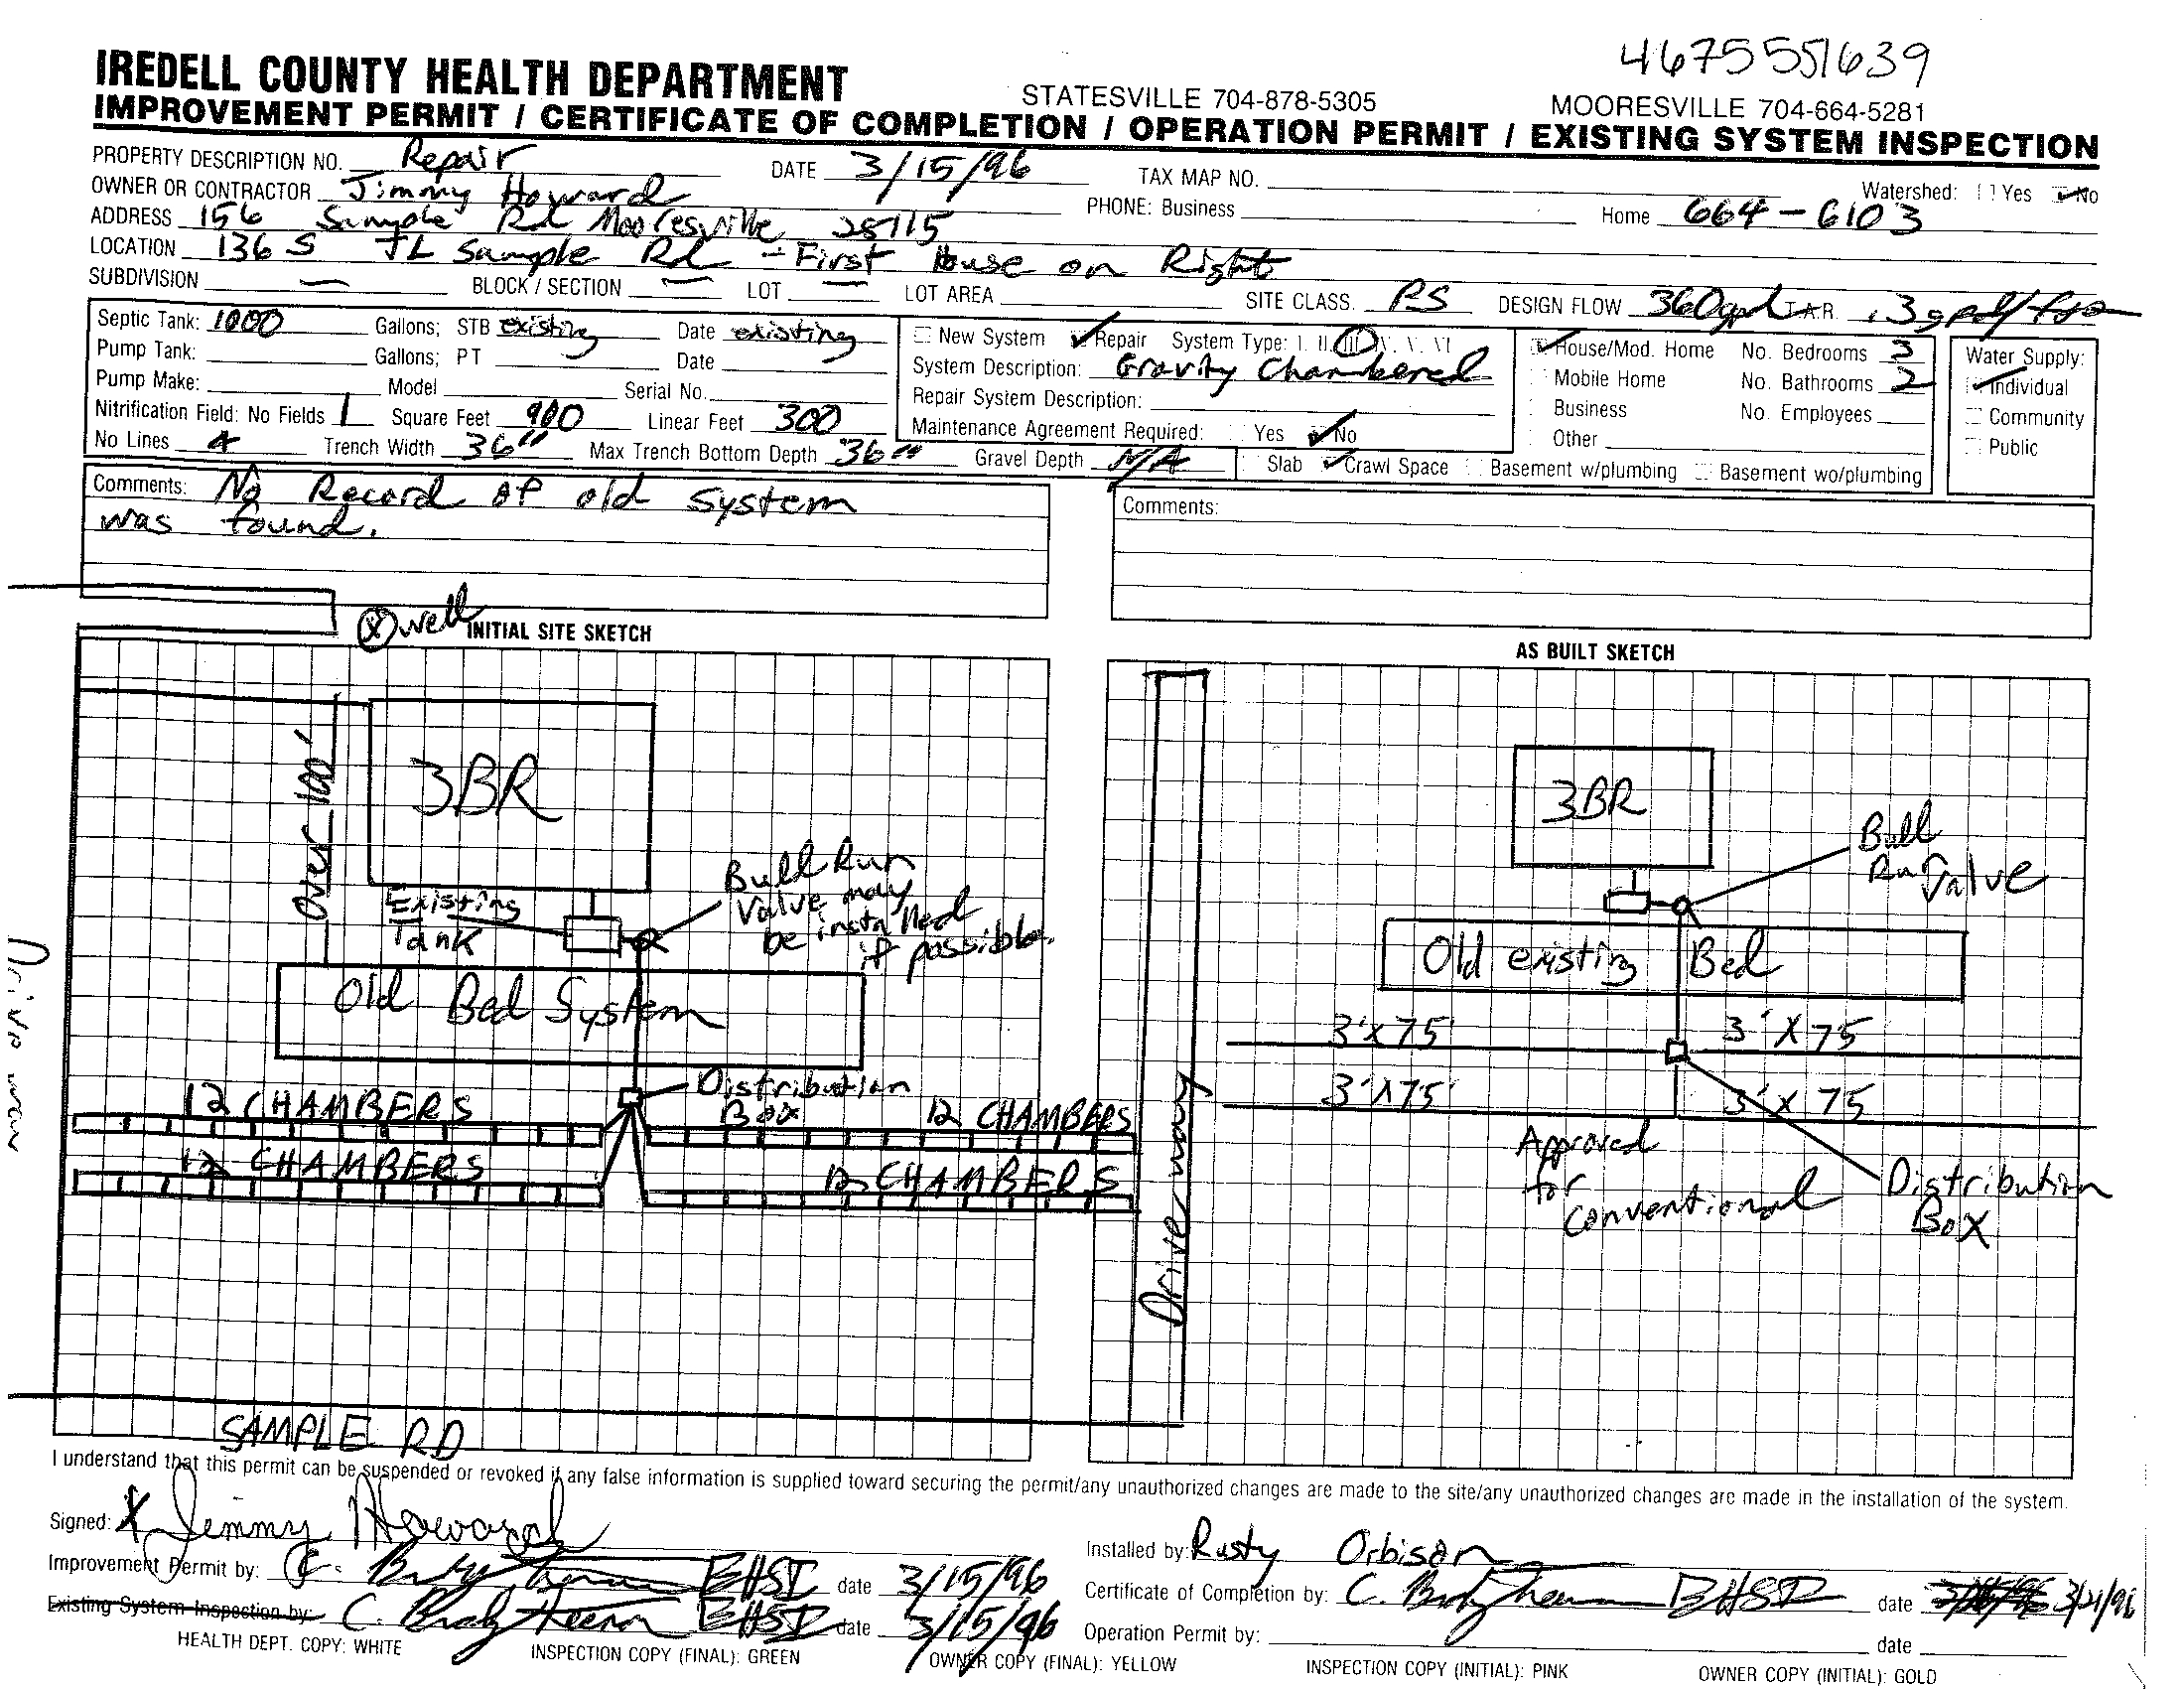 4675551639
IREDELL COUNTY HEALTH DEPARTMENT STATESVILLE 704-878-5305 MOORESVILLE 704-664-5281
IMPROVEMENT PERMIT / CERTIFICATE OF COMPLETION / OPERATION PERMIT / EXISTING SYSTEM INSPECTION
PROPERTY DESCRIPTION NO. Repair DATE 3/15/96 TAX MAP NO. Watershed: Yes No
OWNER OR CONTRACTOR Jimmy Howard PHONE: Business Home 664-6103
ADDRESS 156 Sample Rd Mooresville 28115
LOCATION 136 S TL Sample Rd - First House on Right
SUBDIVISION — BLOCK / SECTION — LOT — LOT AREA SITE CLASS. PS DESIGN FLOW 360gpd T.A.R. .3gpd/
Septic Tank: 1000 Gallons; STB existing Date existing
Pump Tank: Gallons; PT Date
Pump Make: Model Serial No.
Nitrification Field: No Fields 1 Square Feet 900 Linear Feet 300
No Lines 4 Trench Width 36" Max Trench Bottom Depth 36" Gravel Depth N/A
New System Repair System Type: I. II. III. IV. V. VI
System Description: Gravity Chambered
Repair System Description:
Maintenance Agreement Required: Yes No
House/Mod. Home No. Bedrooms 3
Mobile Home No. Bathrooms 2
Business No. Employees
Other
Slab Crawl Space Basement w/plumbing Basement wo/plumbing
Water Supply:
Individual
Community
Public
Comments: No Record of old system
was found.
Comments:
X well
INITIAL SITE SKETCH
Over 100'
3BR
Existing
Tank
Bull Run
Valve may
be installed
if possible.
Old Bed System
Distribution
Box
12 CHAMBERS
12 CHAMBERS
12 CHAMBERS
12 CHAMBERS
Drive way
SAMPLE RD
AS BUILT SKETCH
3BR
Bull
Run Valve
Old existing Bed
3'X75' 3'X75
3'X75' 3'X75
Approved
for
conventional
Distribution
Box
Drive way
I understand that this permit can be suspended or revoked if any false information is supplied toward securing the permit/any unauthorized changes are made to the site/any unauthorized changes are made in the installation of the system.
Signed: X Jimmy Howard
Installed by: Rusty Orbison
Improvement Permit by: C. EHSI date 3/15/96
Certificate of Completion by: C. EHSI date 3/21/96
Existing System Inspection by: C. EHSI date 3/15/96
Operation Permit by: date
HEALTH DEPT. COPY: WHITE INSPECTION COPY (FINAL): GREEN OWNER COPY (FINAL): YELLOW INSPECTION COPY (INITIAL): PINK OWNER COPY (INITIAL): GOLD